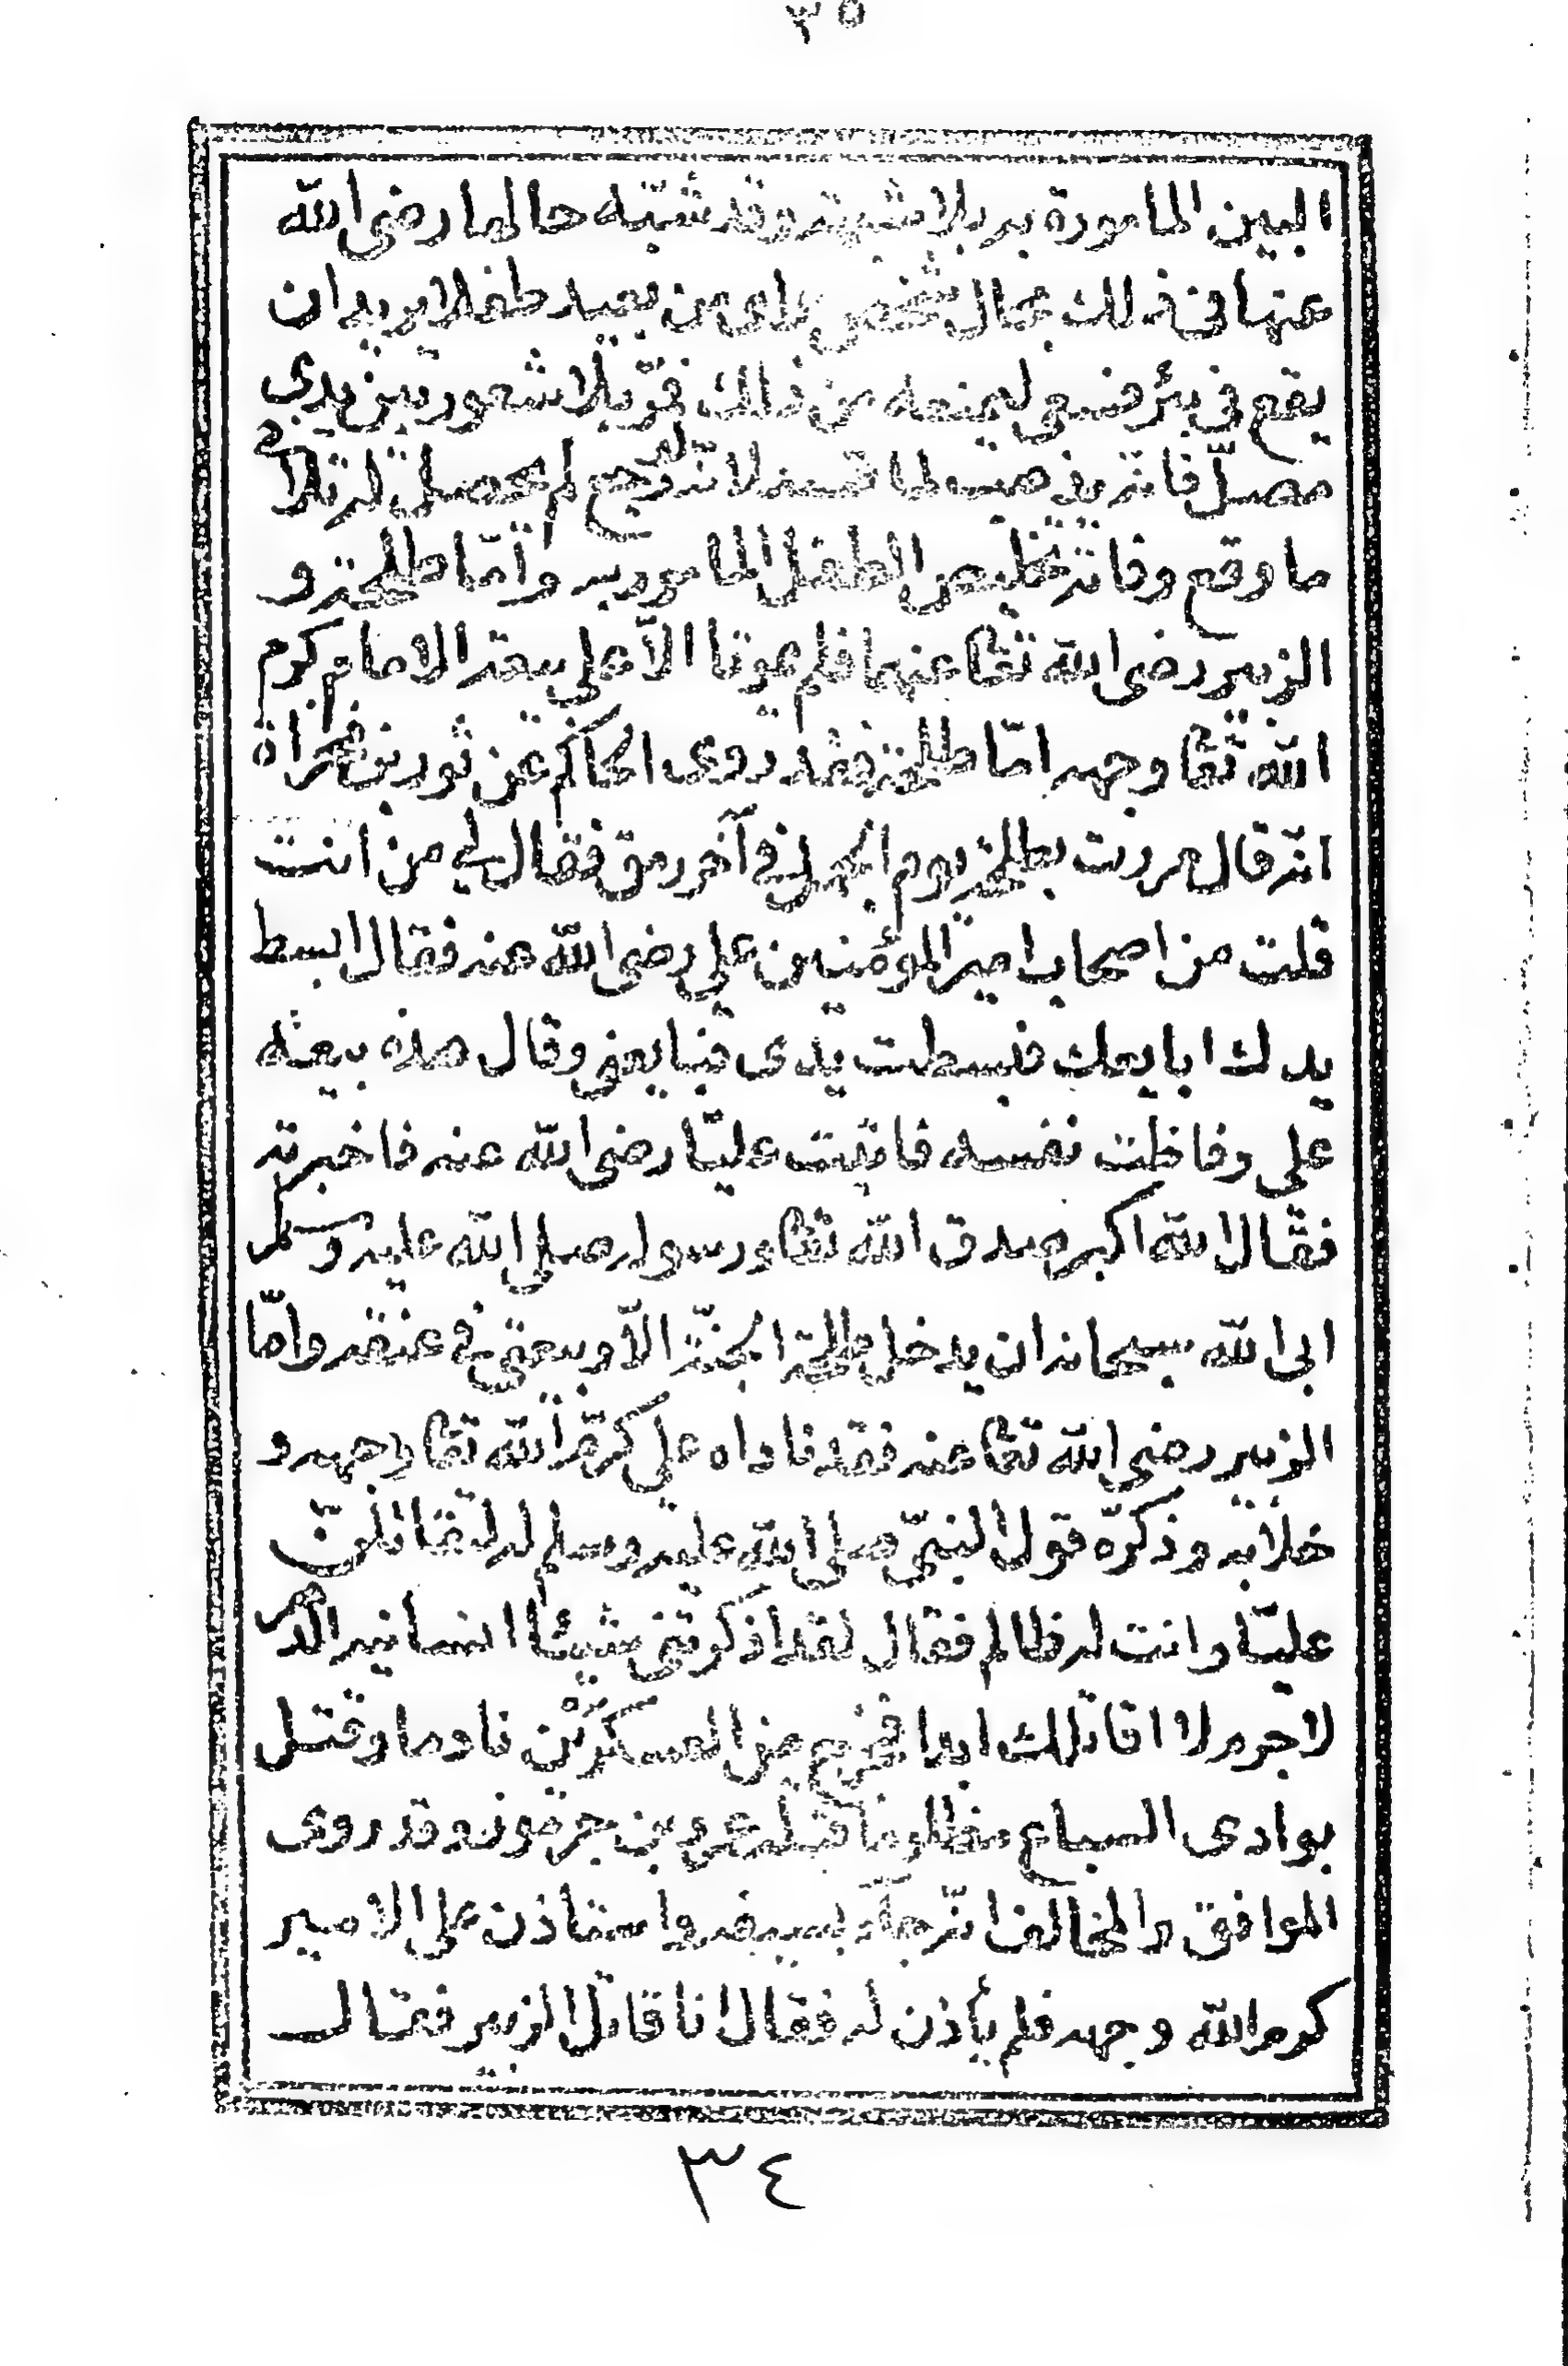 ٣٥
البين المامورة به بلا شبهة وقد شبّه حالها رضى الله
عنها فى ذلك بحال شخص راى من بعيد طفلا يريد ان
يقع فى بئر فسعى ليمنعه من ذلك فمرّ بلا شعور بين يدى
مصلّ فانه يذهب لما قصد لانه لو رجع لم يحصل له تلافى
ما وقع وفاته تخليص الطفل المامور به وأمّا طلحة و
الزبير رضى الله تعا عنهما فلم يموتا الاّ على بيعة الامام كرم
الله تعا وجهه امّا طلحة فقد روى الحاكم عن ثور بن مجزاة
انّه قال مررت بطلحة يوم الجمل فى آخر رمق فقال لى من انت
قلت من اصحاب امير المؤمنين على رضى الله عنه فقال ابسط
يدك ابايعك فبسطت يدى فبايعنى وقال هذه بيعة
على وفاظت نفسه فاتيت عليّا رضى الله عنه فاخبرته
فقال الله اكبر صدق الله تعا ورسوله صلى الله عليه وسلم
ابى الله سبحانه ان يدخل طلحة الجنّة الاّ وبيعتى فى عنقه وامّا
الزبير رضى الله تعا عنه فقد ناداه على كرّم الله تعا وجهه و
خلا به وذكرّه قول النبىّ صلى الله عليه وسلم له لتقاتلنّ
عليّا وانت له ظالم فقال لقد اذكرتنى شيئا انسانيه الدهر
لا جرم لا اقاتلك ابدا فخرج من العسكرين نادما وقتل
بوادى السباع مظلوما قتله عمرو بن جرموز وقد روى
الموافق والمخالف انّه جاء بسيفه واستاذن على الامير
كرم الله وجهه فلم يأذن له فقال انا قاتل الزبير فقال
٣٤